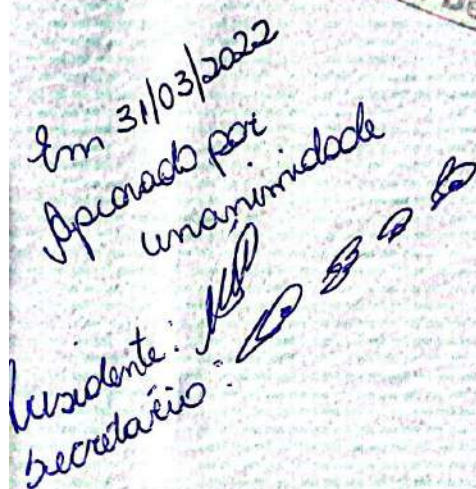 Em 31/03/2022
Aprovado por
unanimidade
Presidente:
Secretário: